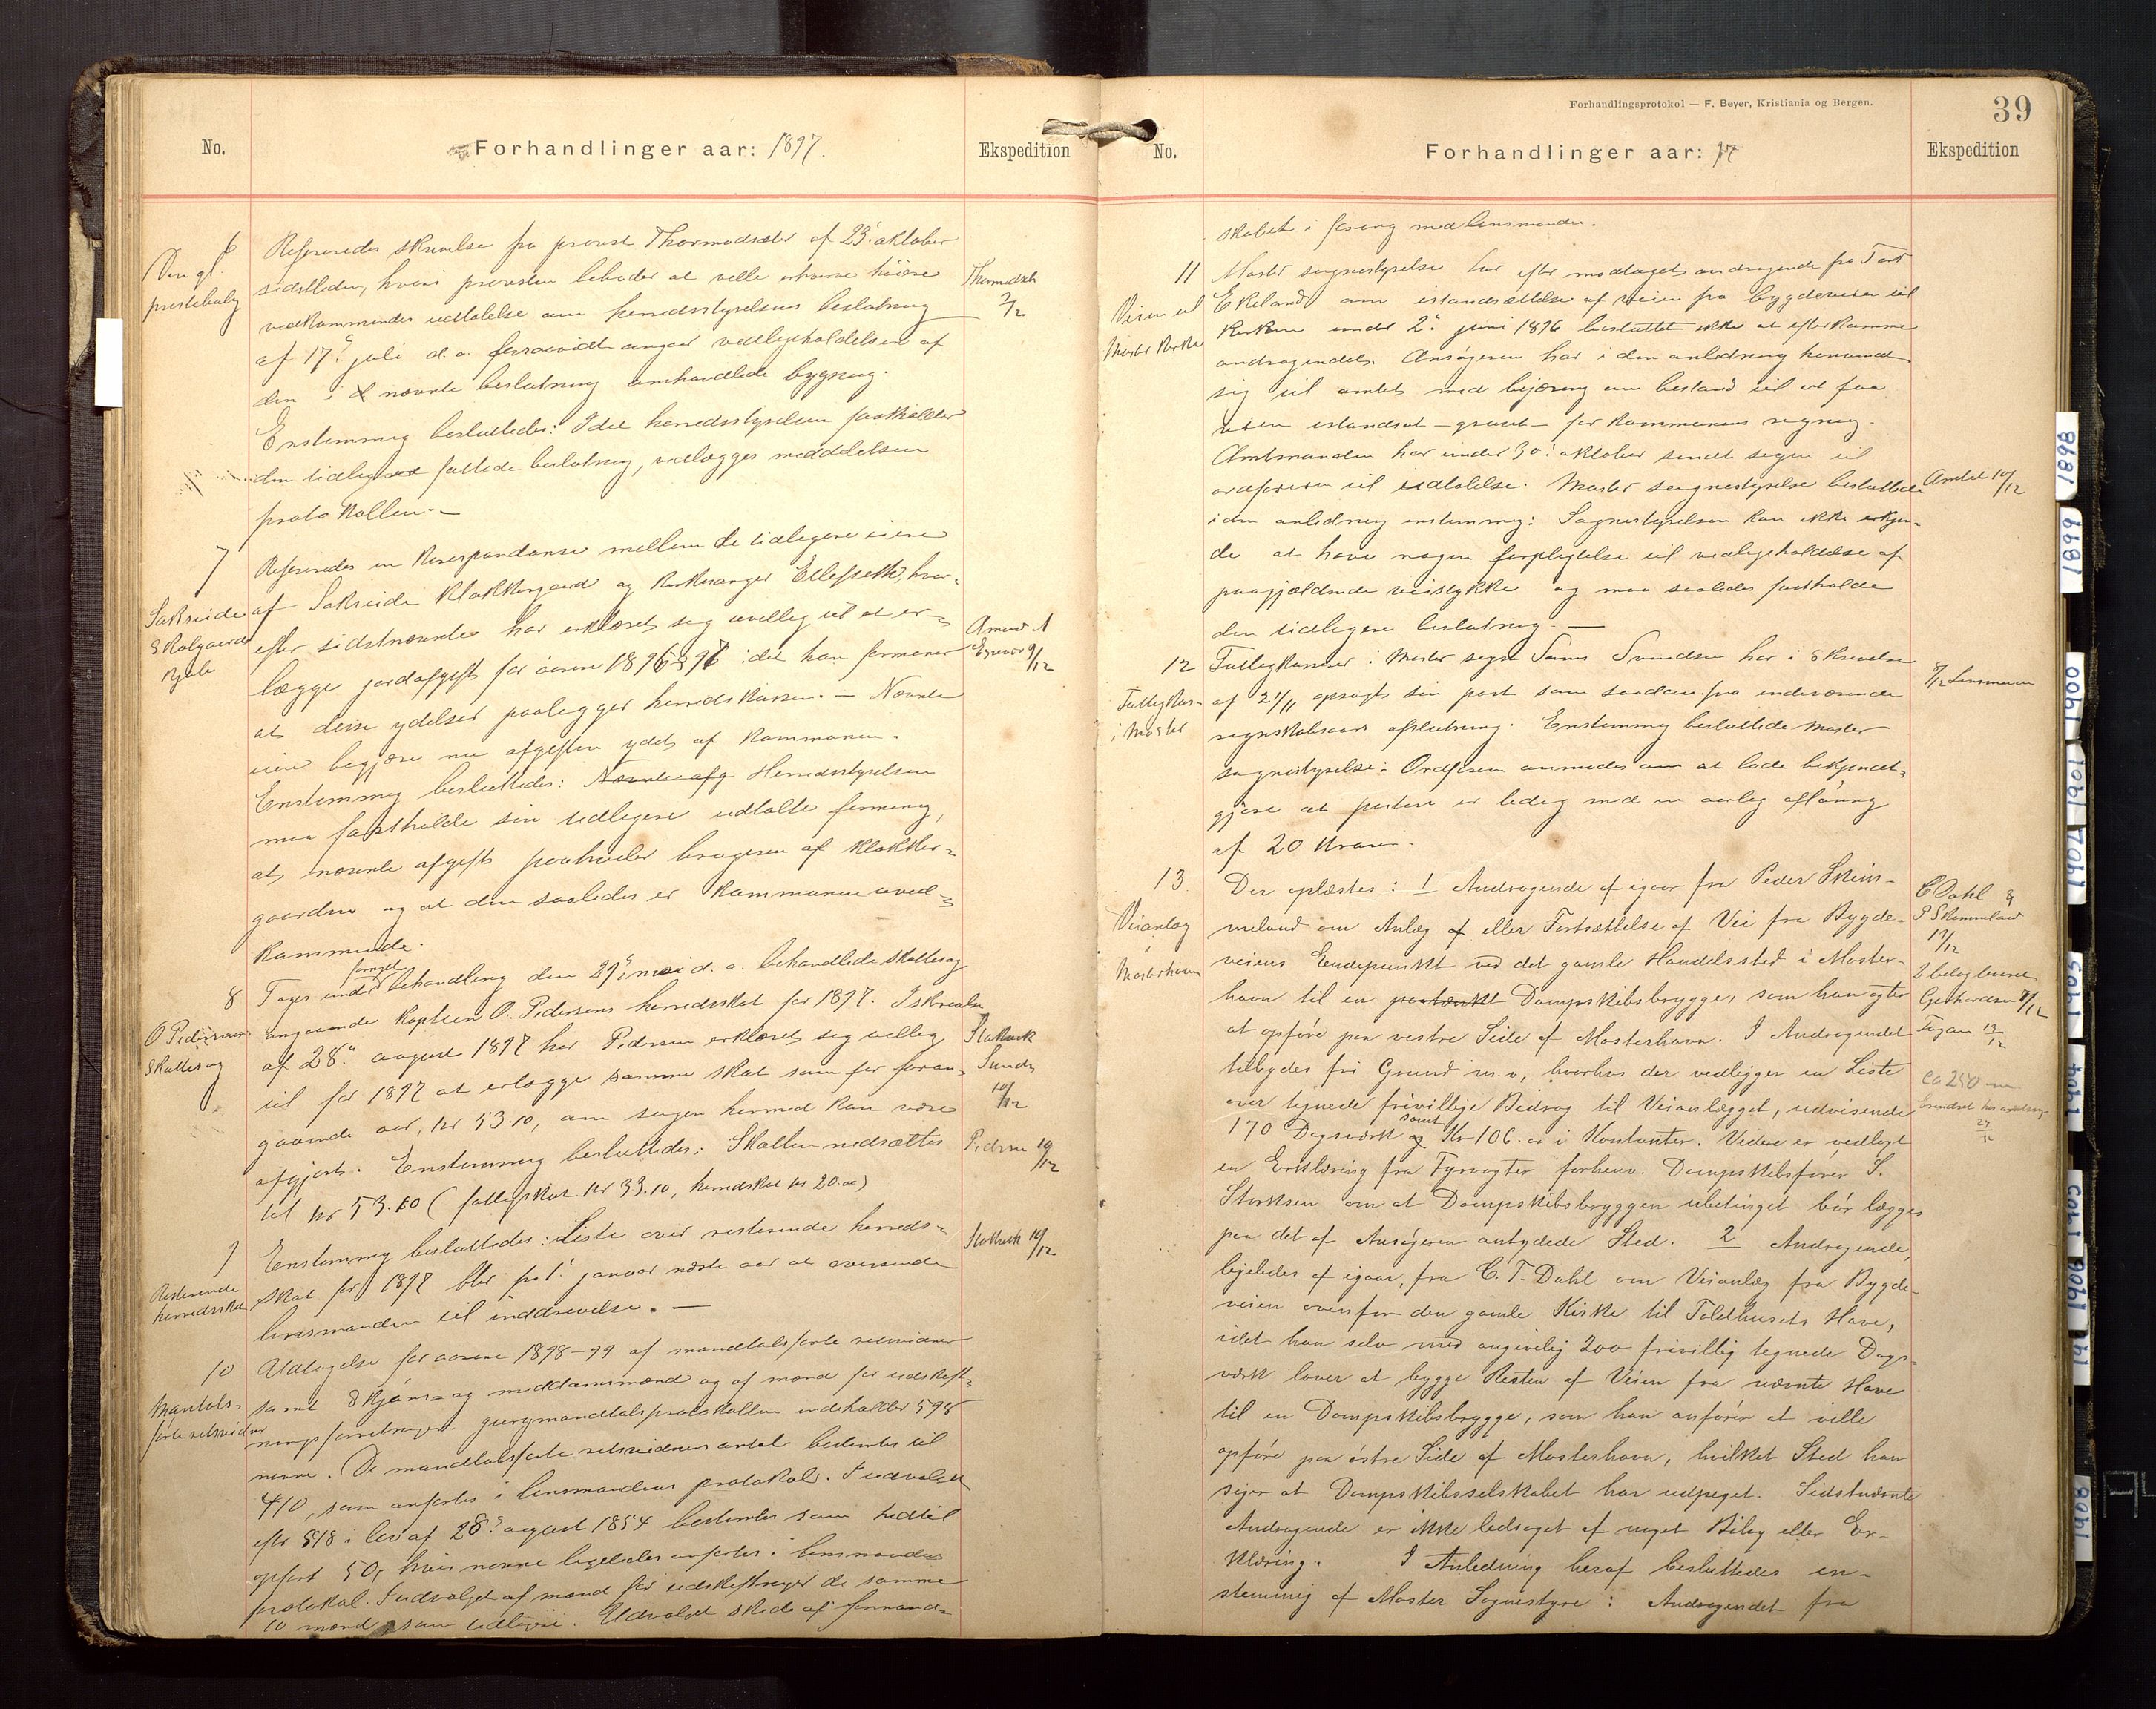 No.
Forhandlinger aar: 1897.
Ekspedition
6
Den gl.
prestebolig
Refereredes skrivelse fra provst Thormodsæter af 23' oktober
sidstleden, hvori provsten bebuder at ville erhverve høiere
vedkommendes udtalelse om herredsstyrelsens beslutning
af 17. juli d.a. forsaavidt angaar vedligeholdelsen af
den i nævnte beslutning omhandlede bygning.
Enstemmig besluttedes: Idet herredsstyrelsen fastholder
den tidligere fattede beslutning, vedlægges meddelelsen
protokollen.—
Thormodsæt
2/12
7
Refereredes en korespondanse mellem de tidligere eiere
af Sakseide klokkergaard og kirkesanger Ellefseth, hvor-
efter sidstnævnte har erklæret sig uvillig til at er-
lægge jordafgift for aarene 1896 & 97 idet han formener
at disse ydelser paaligger herredskassen. — Nævnte
eiere begjære nu afgiften ydet af kommunen.
Enstemmig besluttedes: Nævnte afg Herredsstyrelsen
maa fastholde sin tidligere udtalte formening,
at nævnte afgift paahviler brugeren af klokker-
gaarden og at den saaledes er kommunen uved-
kommende.
Sakseide
Skolgaards
9/12
8
O Pedersens
Skattesag
Tages under fornyet behandling den 29' mai d.a. behandlede skattesag
angaaende kaptein O. Pedersens herredsskat for 1897. I skrivelse
af 28. august 1897 har Pedersen erklæret sig villig
til for 1897 at erlægge samme skat som for foran-
gaaende aar, kr 53.10, om sagen hermed kan være
afgjort. Enstemmig besluttedes: Skatten nedsættes
til kr 53.10 (fattigskat kr 33.10, herredskat kr 20.00)
10/12
Pedersen 10/12
9
Resterende
herredsskat
Enstemmig besluttedes: Liste over resterende herreds-
skat for 1897 blir pr 1' januar næste aar at oversende
lensmanden til inddrivelse. —
10/12
10
Mantals-
førte retsvidner
Udtagelse for aarene 1898-99 af mandtalsførte retsvidner
samt skjøns- og meddomsmænd og af mænd for udskift-
ningsforretninger. Jurymandtalsprotokollen indeholder 598
navne. De mandtalsførte retsvidners antal bestemtes til
410, som anførtes i lensmandens protokol. I udvalget
efter § 18 i lov af 28. august 1854 bestemtes som hidtil
opført 50, hvis navne ligeledes anførtes i lensmandens
protokol. I udvalget af mænd for udskiftninger de samme
10 mænd som tidligere. Udvalget skede af formand-
Forhandlingsprotokol — F. Beyer, Kristiania og Bergen.
39
No.
Forhandlinger aar: 97
Ekspedition
skabet i forening med lensmanden.
11
Veien til
Moster kirke
Moster sognestyrelse har efter modtaget andragende fra
Ekeland om istandsættelse af veien fra bygdeveien til
kirken under 2. juni 1896 besluttet ikke at efterkomme
andragendet. Ansøgeren har i den anledning henvendt
sig til amtet med begjæring om bistand til at faa
veien istandsat – gruset – for kommunens regning.
Amtmanden har under 30. oktober sendt sagen til
ordføreren til udtalelse. Moster sognestyrelse besluttede
i den anledning enstemmig: Sognestyrelsen kan ikke erkjen-
de at have nogen forpligtelse til vedligeholdelse af
paagjældende veistykke og maa saaledes fastholde
den tidligere beslutning. —
Amtet 10/12
12
Fattigkas-
i Moster
Fattigkasserer i Moster sogn Svendsen har i skrivelse
af 21/11 opsagt sin post som saadan fra indeværende
regnskabsaars afslutning. Enstemmig besluttede Moster
sognestyrelse: Ordføreren anmodes om at lade bekjendt-
gjøre at posten er ledig med en aarlig aflønning
af 20 kroner.
8/12 Lensmanden
13
Veianlæg
i
Mosterhavn
Der oplæstes: 1 Andragende af igaar fra Peder Skim-
meland om Anlæg af eller Fortsættelse af Vei fra Bygde-
veiens Endepunkt ved det gamle Handelssted i Moster-
havn til en paatænkt Dampskibsbrygge, som han agter
at opføre paa vestre Side af Mosterhavn. I Andragendet
tilbydes fri Grund m.v., hvorhos der vedligger en Liste
over tegnede frivillige Bidrag til Veianlægget, udvisende
170 Dagsværk og samt Kr 106.00 i Kontanter. Videre er vedlagt
en Erklæring fra Fyrvogter forhenv. Dampskibsfører S.
Storksen om at Dampskibsbryggen ubetinget bør lægges
paa det af Ansøgeren antydede Sted. 2 Andragende,
ligeledes af igaar, fra C. T. Dahl om Veianlæg fra Bygde-
veien ovenfor den gamle Kirke til Toldhusets Have,
idet han selv med angivelig 200 frivillig tegnede Dags-
værk lover at bygge Resten af Veien fra nævnte Have
til en Dampskibsbrygge, som han anfører at ville
opføre paa østre Side af Mosterhavn, hvilket Sted han
siger at Dampskibsselskabet har udpeget. Sidstnævnte
Andragende er ikke ledsaget af noget Bilag eller Er-
klæring. I Anledning heraf besluttedes en-
stemmig af Moster Sognestyre: Andragendet fra
C Dahl &
P Skimmeland
Gerhardsen
ca 250 m
1898
1899
1900
1901
1902
1903
1904
1905
1906
1908